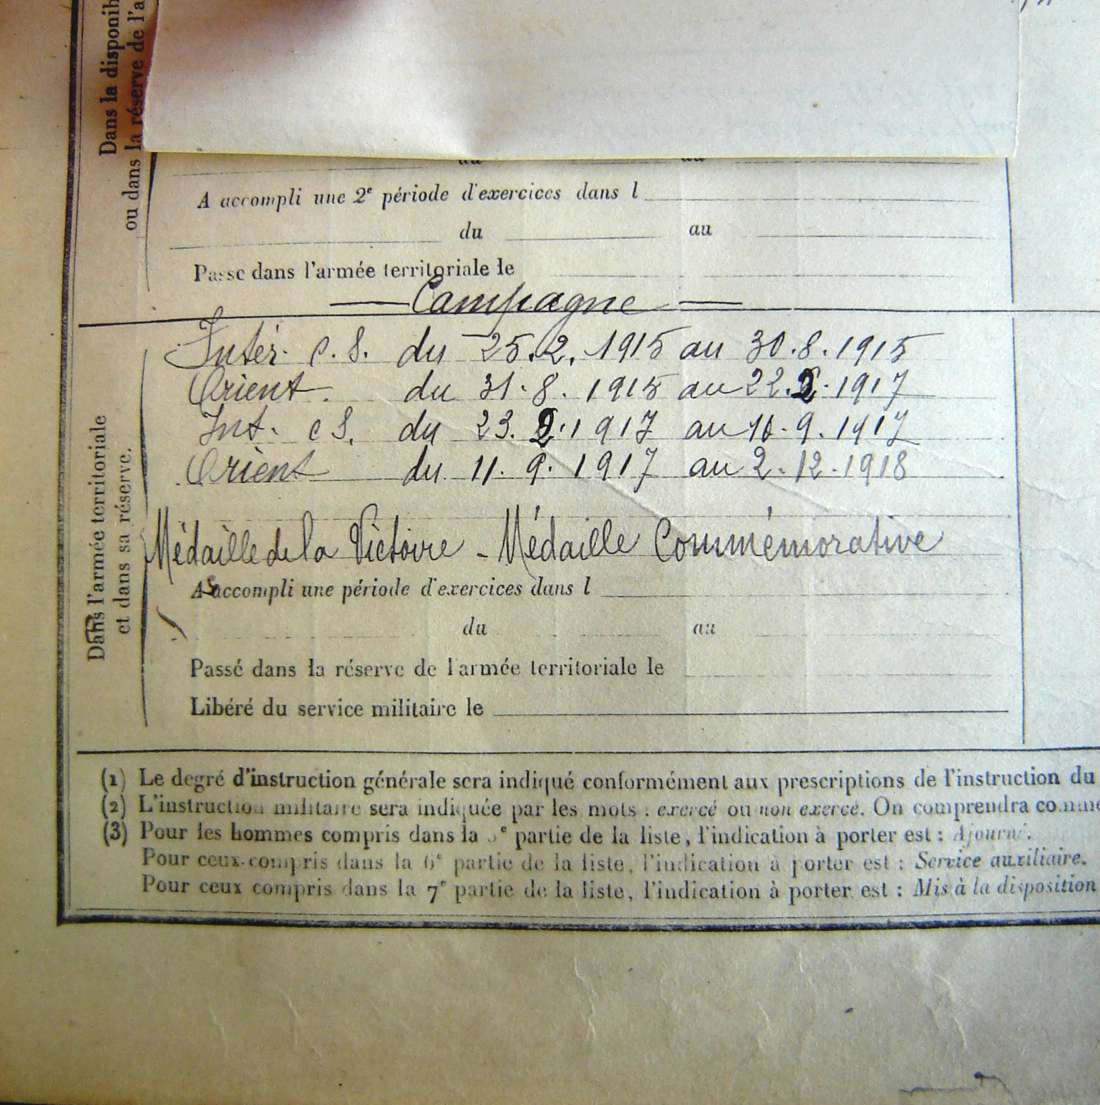 Dans la disponib
ou dans la réserve de l'a
du au
A accompli une 2e période d'exercices dans l
du au
Passé dans l'armée territoriale le
Campagne
Intér. c. S. du 25.2.1915 au 30.8.1915
Orient. du 31.8.1915 au 22.2.1917
Int. c S. du 23.2.1917 au 10.9.1917
Orient du 11.9.1917 au 2.12.1918
Médaille de la Victoire - Médaille Commémorative
Dans l'armée territoriale
et dans sa réserve.
A accompli une période d'exercices dans l
du au
Passé dans la réserve de l'armée territoriale le
Libéré du service militaire le
(1) Le degré d'instruction générale sera indiqué conformément aux prescriptions de l'instruction du
(2) L'instruction militaire sera indiquée par les mots : exercé ou non exercé. On comprendra comme
(3) Pour les hommes compris dans la 5e partie de la liste, l'indication à porter est : Ajourné.
Pour ceux compris dans la 6e partie de la liste, l'indication à porter est : Service auxiliaire.
Pour ceux compris dans la 7e partie de la liste, l'indication à porter est : Mis à la disposition